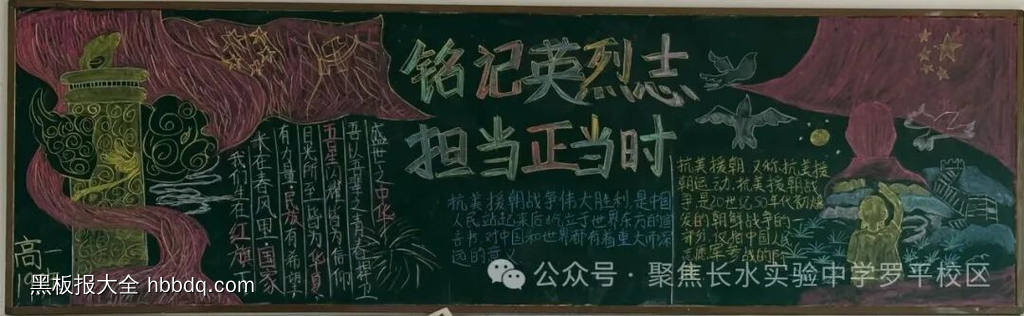 铭记英烈志
担当正当时
盛世之中华
吾以吾辈之青春捍卫
五星闪耀皆为信仰
日月所至皆为华夏
有力量·民族有希望
长在春风里 国家
我们生在红旗下
抗美援朝战争伟大胜利是中国
人民站起来后屹立于世界东方的宣
言书，对中国和世界都有着重大而深
远的意
抗美援朝，又称抗美援
朝运动，抗美援朝战
争是20世纪50年代初爆
发的朝鲜战争的
一部分，仅指中国人民
高一
黑板报大全 hbbdq.com
公众号·聚焦长水实验中学罗平校区